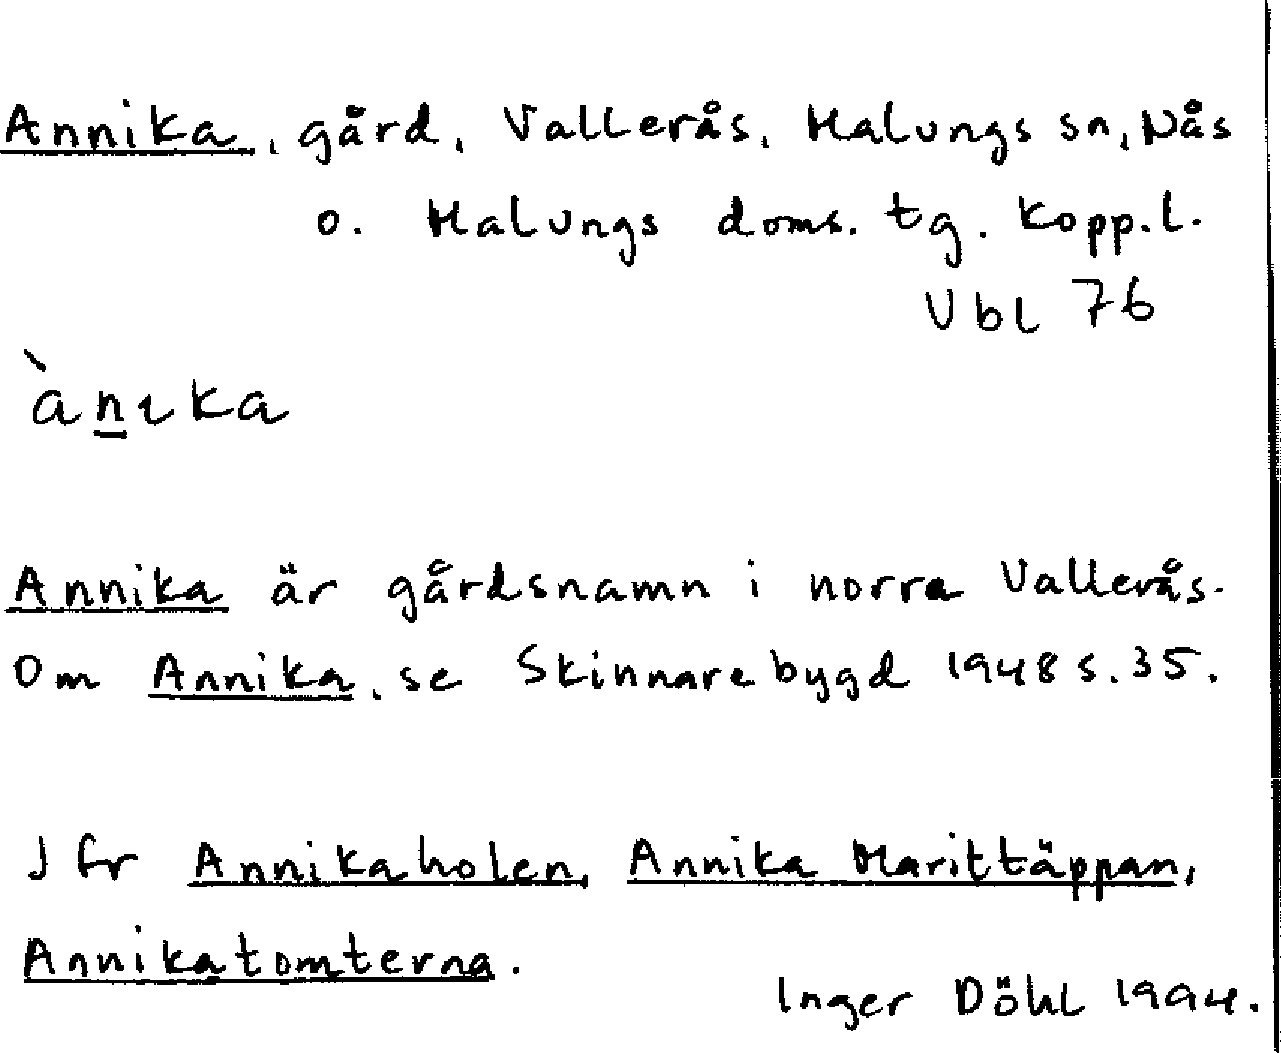 Annika, gård, Vallerås, Malungs sn, Nås
o. Malungs doms. tg. Kopp.l.
Vbl 76
ànıka
Annika är gårdsnamn i norra Vallerås.
Om Annika, se Skinnarebygd 1948 s. 35.
Jfr Annikaholen, Annika Marittäppan,
Annikatomterna.
Inger Döhl 1994.